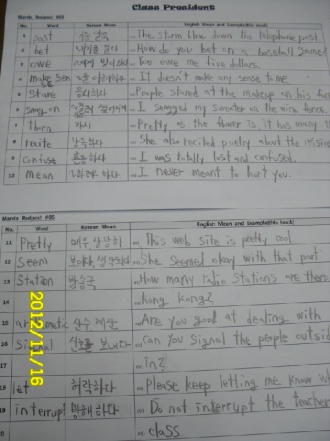 Class President
Words Request #03
No. Word Korean Mean English Mean and Example(this book)
1 post The storm blew down the telephone post
2 bet 내기를 걸다 How do you bet on a baseball game
3 owe You owe me five dollars.
4 make sense It doesn't make any sense to me
5 Stare People stared at the makeup on his
6 on I snagged my sweater on the wire fence
7 thorn 가시 Pretty as the flower is, it has many
8 recite She also recited poetry about the
9 confuse I was totally lost and confused.
10 mean I never meant to hurt you.
Words Request #05
No. Word Korean Mean English Mean and Example(this book)
11 Pretty 매우, 상당히 This web site is pretty cool
12 Seem She seemed okay with that part
13 Station 방송국 How many radio Stations are there
14 Hong Kong?
15 산수 Are you good at dealing with
16 Signal 신호를 보내다 Can you signal the people outside
17 in?
18 let 허락하다 Please keep letting me know
19 interrupt 방해하다 Do not interrupt the teacher
class
2012/11/16